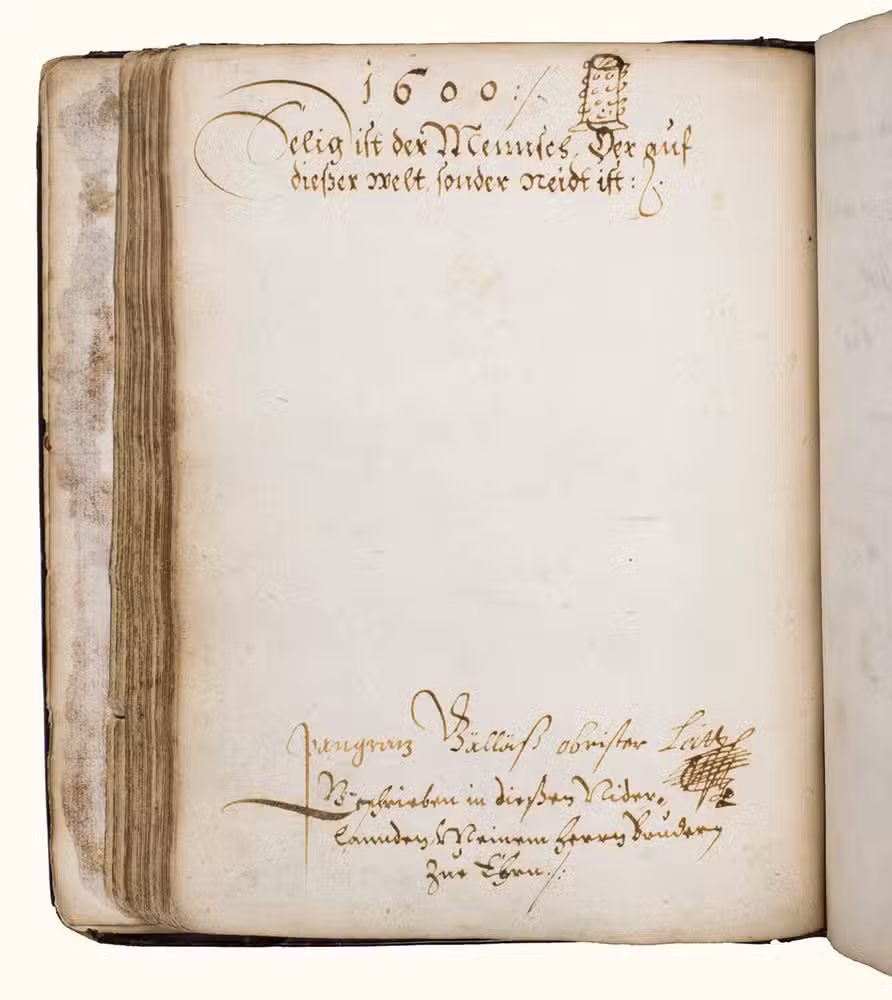 1600 :/.
Selig ist der Mennsch, Der auf
dießer Welt, sonder Neidt ist :/.
Pangratz Gälläß obrister
Geschrieben in dießen Nider-
lannden, Meinem Herrn Bruedern
Zue Ehrn ./.